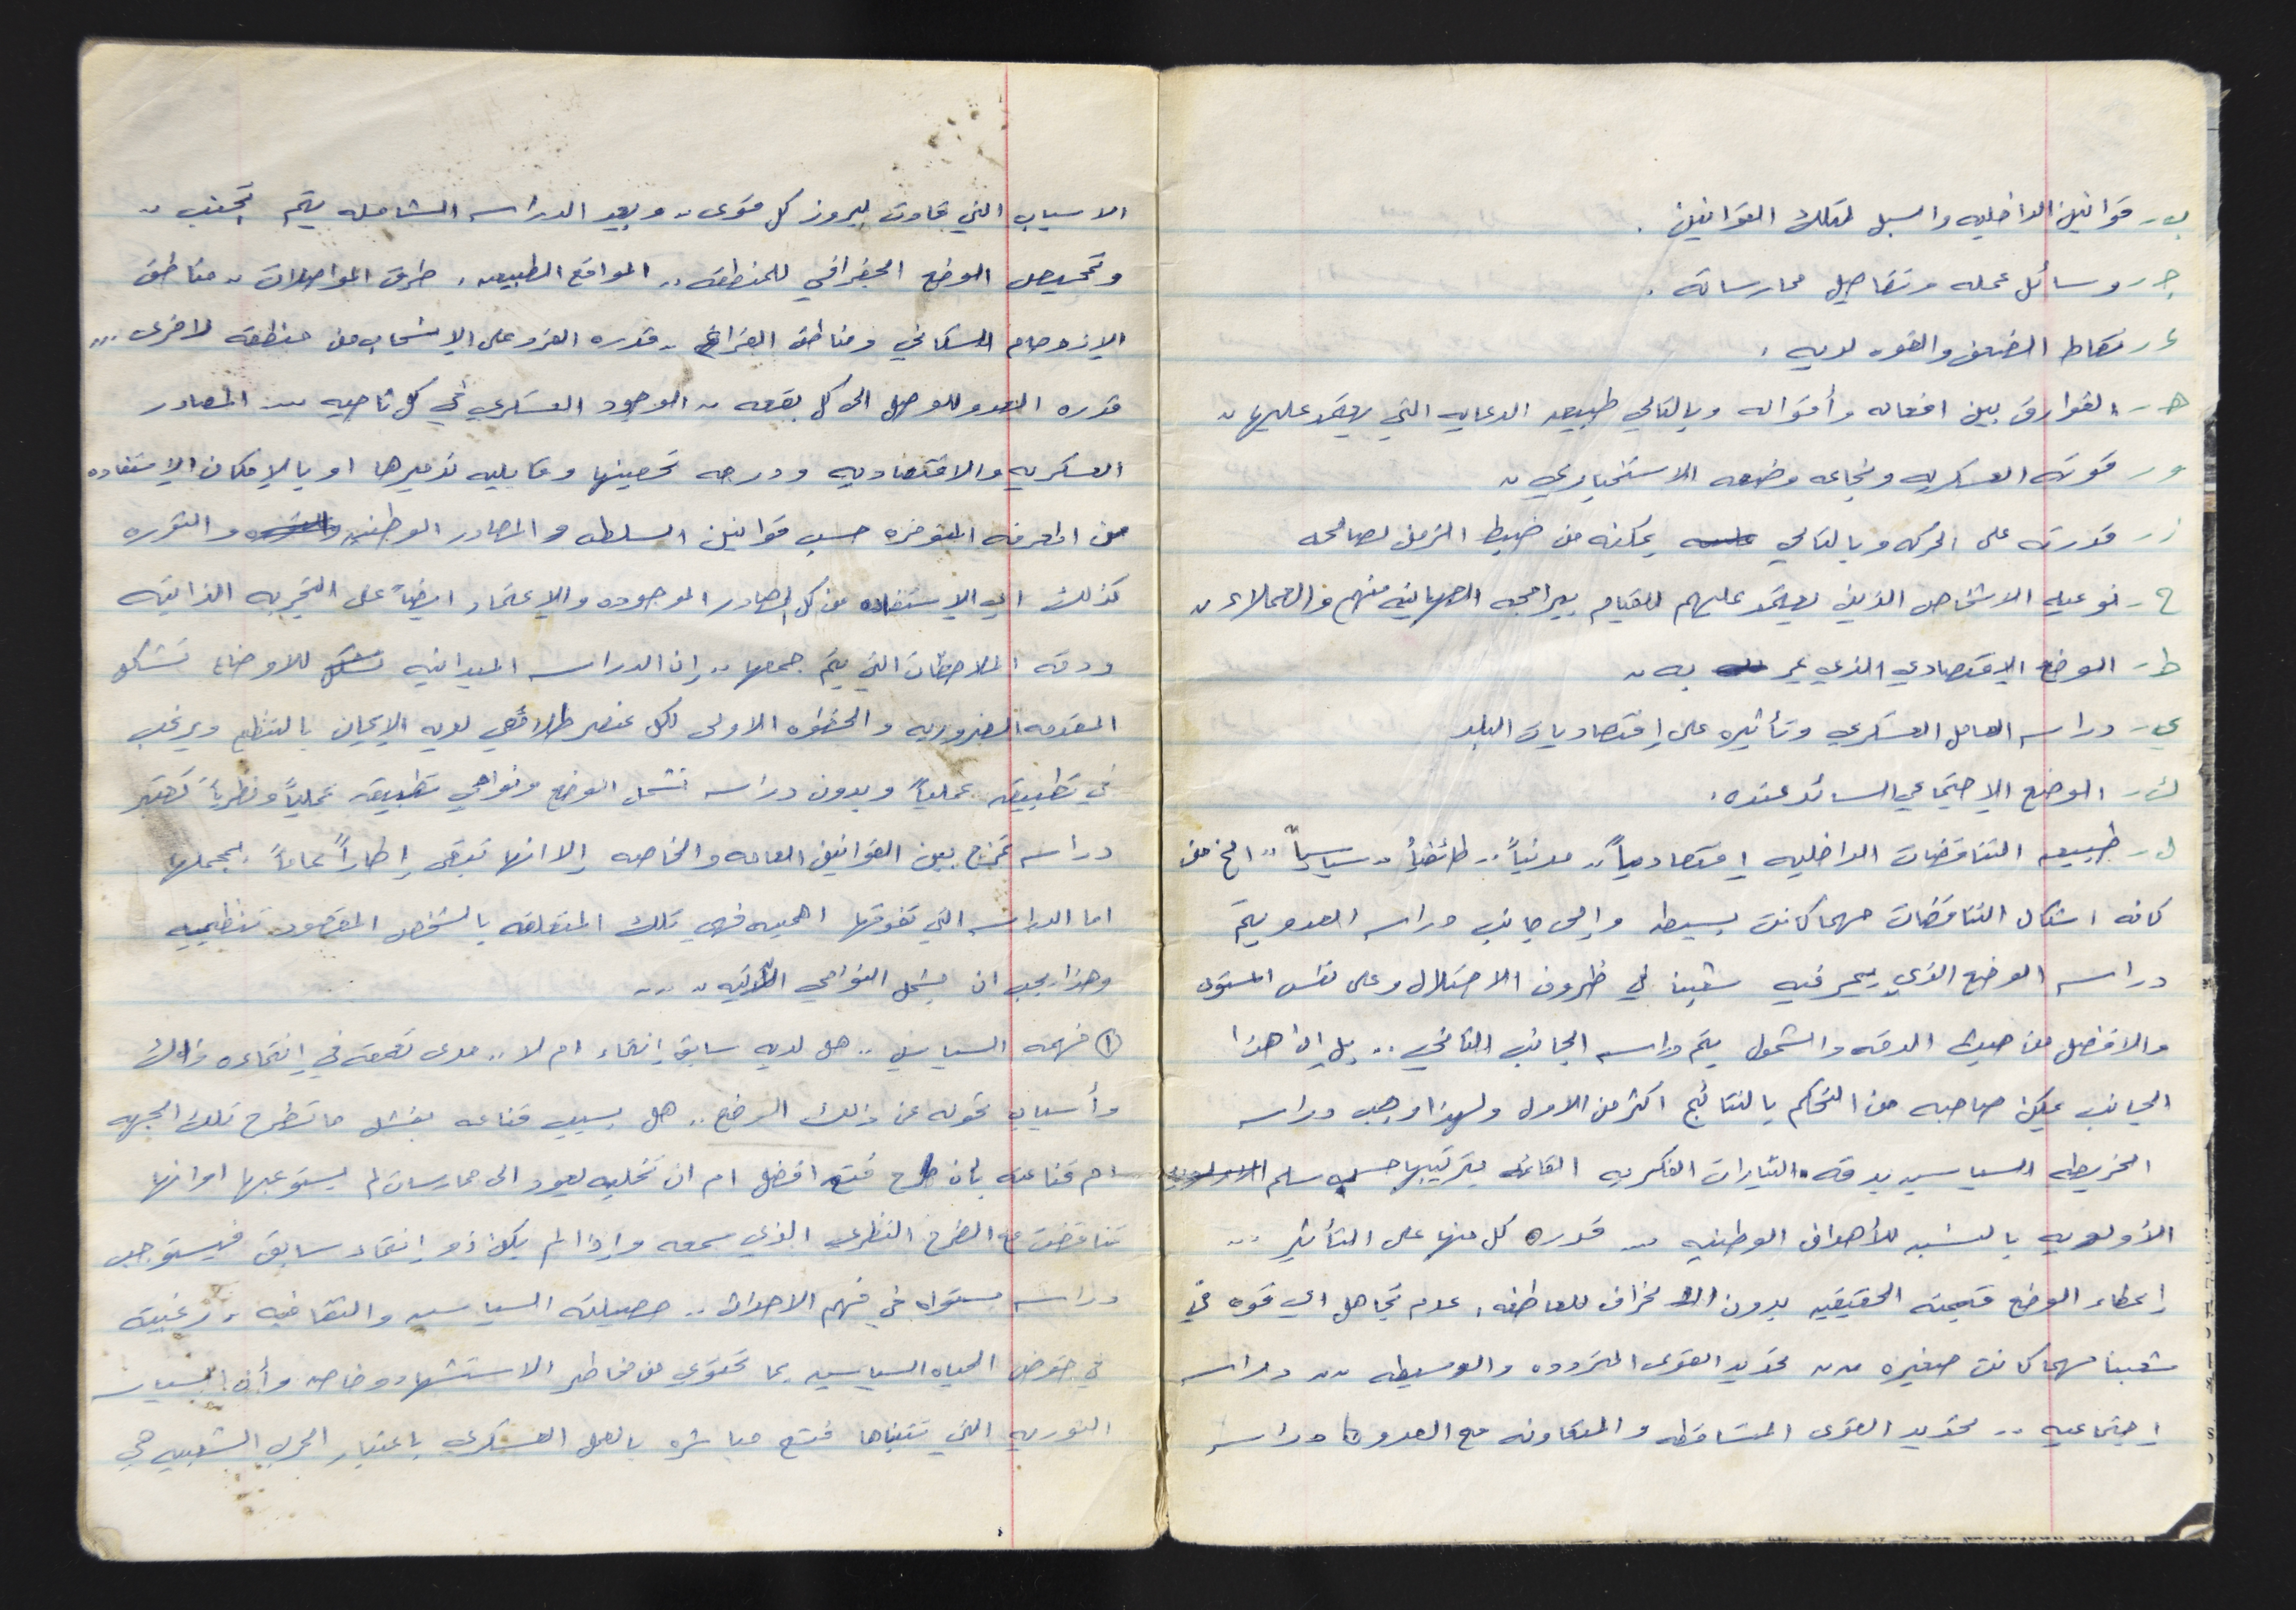 ب- قوانينه الداخليه والسبل لتلك القوانين.
ج- وسائل عمله وتفاصيل ممارساته.
د- نقاط الضعف والقوه لديه.
هـ- الفوارق بين افعاله وأقواله وبالتالي طبيعه الدعايه التي يعتمد عليها..
و- قوته العسكريه ونجاعه وضعه الاستخباري..
ز- قدرته على الحركه وبالتالي يمكنه من ضبط الزمن لصالحه
ح- نوعيه الاشخاص الذين يعتمد عليهم للقيام ببرامجه الصهاينه منهم والعملاء..
ط- الوضع الاقتصادي الذي يمر به..
ي- دراسه العامل العسكري وتأثيره على إقتصاديات البلد
ك- الوضع الاجتماعي السائد عنده.
ل- طبيعه التناقضات الداخليه إقتصادياً.. مدنياً.. طائفياً.. سياسياً.. الخ من
كافه اشكال التناقضات مهما كانت بسيطه وإلى جانب دراسه العدو يتم
دراسه الوضع الذي يمر فيه شعبنا في ظروف الاحتلال وعلى نفس المستوى
والافضل من حيث الدقه والشمول يتم دراسه الجانب الثاني.. بل إن هذا
الجانب يمكن صاحبه من التحكم بالنتائج اكثر من الاول ولهذا وجب دراسه
الخريطه السياسيه بدقه. التيارات الفكريه القائمه بترتيبها حسب سلم
الأولويه بالنسبه للأهداف الوطنيه ... قدره كل منها على التأثير ...
إعطاء الوضع قيمته الحقيقيه بدون انحراف للعاطفه, عدم تجاهل اي قوه في
شعبنا مهما كانت صغيره .... تحديد القوى المتردده والوسيطه .... دراسه
إجتماعيه .. تحديد القوى المتساقطه والمتعاونه مع العدو دراسه
الاسباب التي تجاوت لبروز كل قوى.. وبعد الدراسه الشامله يتم تجنب..
وتمحيص الوضع الجغرافي للمنطقه.. المواقع الطبيعه, طرق المواصلات.. مناطق
الازدحام السكاني ومناطق الفراغ.. قدره الفرد على الانسحاب من منطقه لاخرى...
قدره العدو للوصل الى كل بقعه.. الوجود العسكري في كل ناحيه .... المصادر
العسكريه والاقتصاديه ودرجه تحصينها وقابليه تدميرها او بالإمكان الإستفاده
من المعرفه المتوفره حسب قوانين السلطه والمصادر الوطنيه والثوره
كذلك اي الاستفاده من كل المصادر الموجوده والإعتماد ايضاً على التجربه الذاتيه
ودقه الملاحظات التي يتم جمعها.. إن الدراسه الميدانيه للاوضاع تشكل
المقدمه الضروريه والخطوه الاولى لكل عنصر طلائعي لديه الإيمان بالتنظيم ويرغب
في تطبيقه عملياً وبدون دراسه تشمل الوضع ونواحي تطبيقه عملياً ونظرياً تعتبر
دراسه تمزج بين القوانين العامه والخاصه إلا انها تبقى إطاراً عاماً بمجملها
اما الدراسه التي تفوقها اهميه فهي تلك المتعلقه بالشخص المقصود تنظيميه
وهذا يجب ان يشمل النواحي الآتيه....
① فهمه السياسي .. هل لديه سابق إنتماء ام لا.. مدى تعمقه في إنتماءه ذلك
وأسباب تحوله عن ذلك الوضع.. هل بسبب قناعه بفشل ما تطرح تلك الجبهه
ام قناعته بان طرح فتح افضل ام ان تخليه يعود الى ممارسات لم يستوعبها او انها
تناقضت مع الطرح النظري الذي سمعه وإذا لم يكن ذو إنتماء سابق فيستوجب
دراسه مستواه في فهم الاحداث.. حصيلته السياسيه والثقافيه, رغبته
في خوض الحياه السياسيه بما تحتوي من مخاطر الاستشهاد وخاصه وأن السياسه
الثوريه التي تتبناها فتح مباشره بالعمل العسكري باعتبار الحرب الشعبيه هي